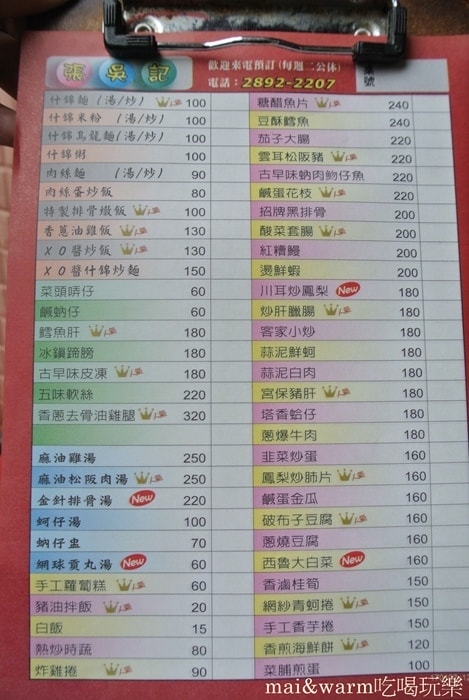 張吳記
歡迎來電預訂(每週二公休)
電話：2892-2207
號
什錦麵（湯/炒） 人氣 100
什錦米粉（湯/炒） 100
什錦烏龍麵(湯/炒) 100
什錦粥 100
肉絲麵（湯/炒） 90
肉絲蛋炒飯 80
特製排骨燉飯 人氣 100
香蔥油雞飯 人氣 130
XO醬炒飯 人氣 130
XO醬什錦炒麵 150
菜頭哖仔 60
鹹蚋仔 60
鱈魚肝 人氣 180
冰鎮蹄膀 180
古早味皮凍 人氣 180
五味軟絲 220
香蔥去骨油雞腿 人氣 320
麻油雞湯 250
麻油松阪肉湯 人氣 250
金針排骨湯 New 220
蚵仔湯 100
蚋仔盅 70
網球貢丸湯 New 60
手工蘿蔔糕 人氣 60
豬油拌飯 人氣 20
白飯 15
熱炒時蔬 80
炸雞捲 人氣 90
糖醋魚片 人氣 240
豆酥鱈魚 240
茄子大腸 220
雲耳松阪豬 人氣 220
古早味蚋肉魩仔魚 220
鹹蛋花枝 人氣 220
招牌黑排骨 200
酸菜套腸 人氣 200
紅糟鰻 200
燙鮮蝦 200
川耳炒鳳梨 New 180
炒肝臘腸 人氣 180
客家小炒 180
蒜泥鮮蚵 180
蒜泥白肉 180
宮保豬肝 人氣 180
塔香蛤仔 180
蔥爆牛肉 180
韭菜炒蛋 160
鳳梨炒肺片 人氣 160
鹹蛋金瓜 160
破布子豆腐 人氣 160
蔥燒豆腐 160
西魯大白菜 New 160
香滷桂筍 150
網紗青蚵捲 人氣 150
手工香芋捲 150
香煎海鮮餅 人氣 120
菜脯煎蛋 100
mai&warm吃喝玩樂